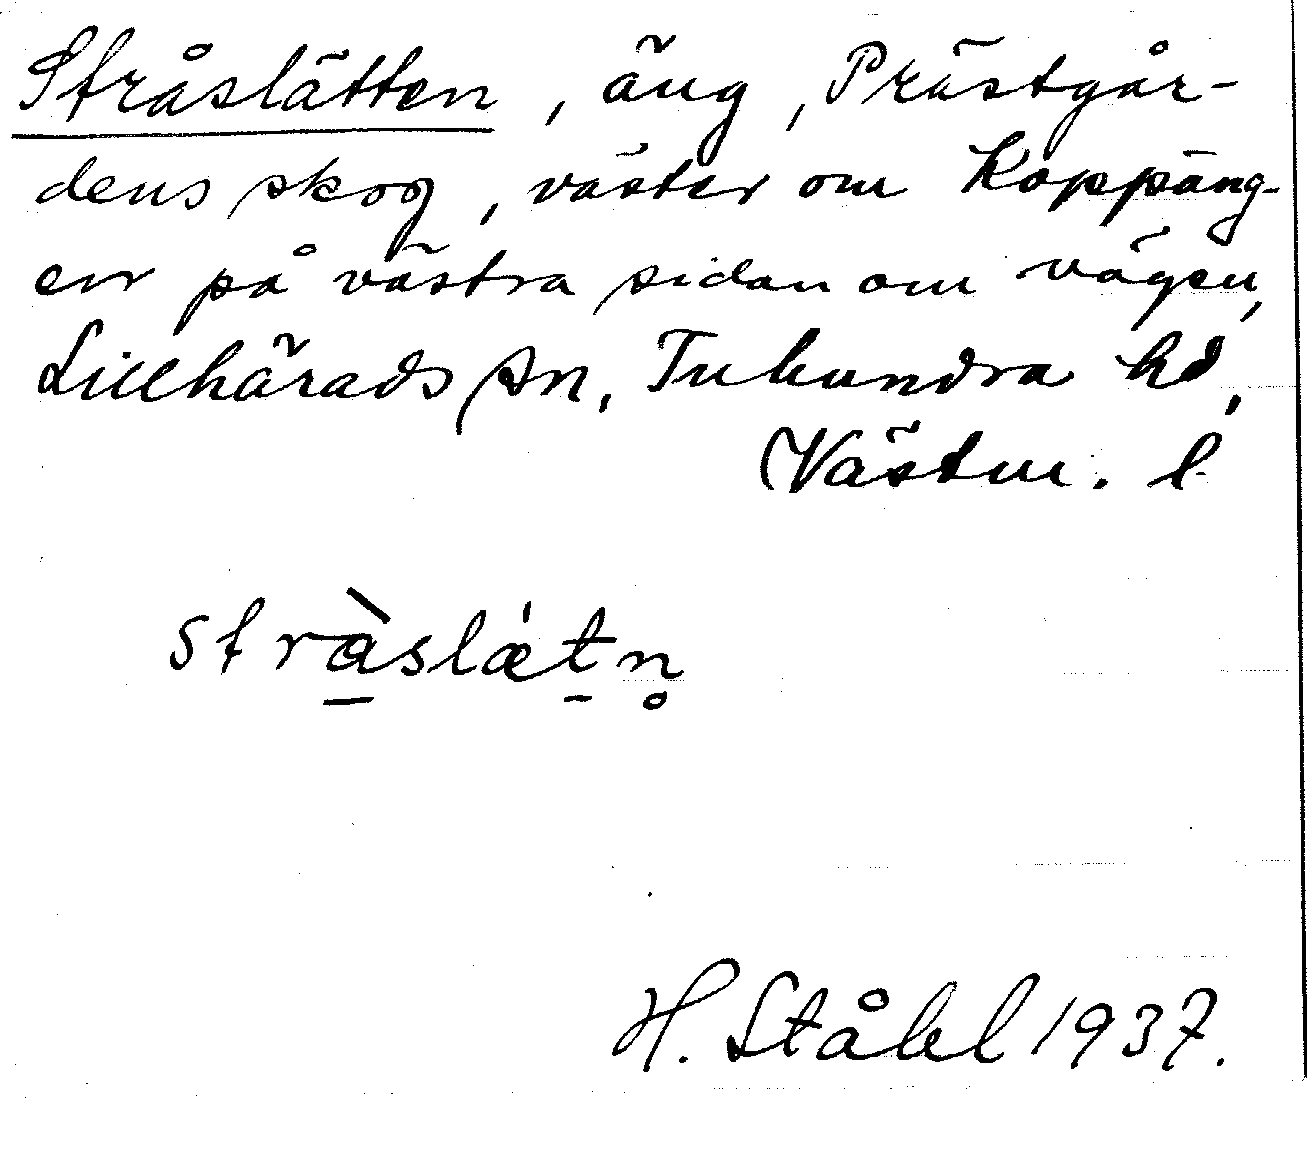 Stråslätten, äng, Prästgår-
dens skog, väster om Koppäng-
en på västra sidan om vägen,
Lillhärads sn, Tuhundra hd,
Västm. l
stràslǽtn̥
H. Ståhl 1937.